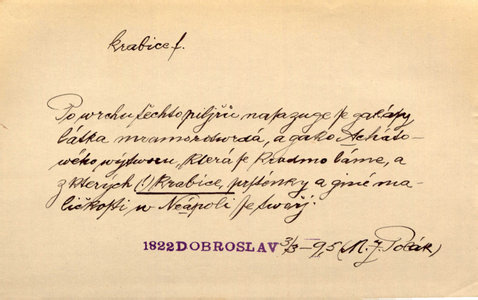 krabice f.
Po wrchu těchto pilířů nasazuge se gakási
látka mramorotwrdá, a gako Acháto-
wého wýtworu, která se kradmo láme, a
z kterých (!) krabice, prsténky a giné ma-
ličkosti w Neápoli se twořj.
1822 DOBROSLAV 3/3 — 95 (M. J. Polák)